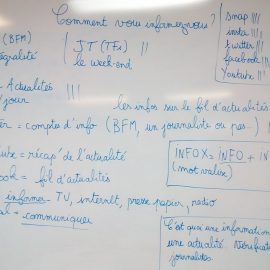 Comment vous informez-vous ?
(BFM)
égralité
JT (TF1) ||
le week-end
snap |||
insta |||
twitter |||
facebook
Youtube |||
Actualités
jour
les infos sur le fil d'actualités
= comptes d'info (BFM, un journaliste ou pas
= récap' de l'actualité
INFOX = INFO + IN
(mot valise)
ook = fil d'actualités
informer - TV, internet, presse papier, radio
= communiquer
C'est quoi une information
une actualité. Vérifica
journalistes.